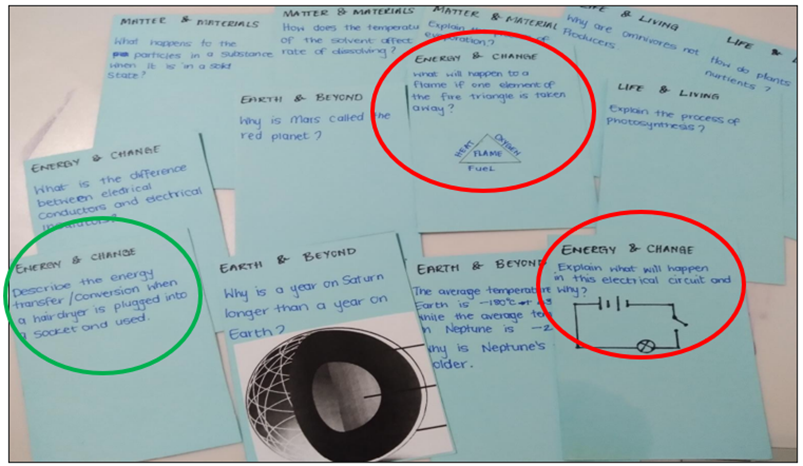 MATTER & MATERIALS
What happens to the
particles in a substance
when it is in a solid
state?
MATTER & MATERIALS
How does the temperatu
of the solvent affect
rate of dissolving?
MATTER & MATERIAL
Explain the
evaporation?
LIFE & LIVING
Why are omnivores not
Producers
LIFE &
How do plants
nutrients?
EARTH & BEYOND
Why is Mars called the
red planet?
ENERGY & CHANGE
What will happen to a
flame if one element of
the fire triangle is taken
away?
HEAT
OXYGEN
FLAME
FUEL
LIFE & LIVING
Explain the process of
photosynthesis?
ENERGY & CHANGE
What is the difference
between eledrical
conductors and electrical
ENERGY & CHANGE
Describe the energy
transfer/conversion when
a hairdryer is plugged into
a socket and used.
EARTH & BEYOND
Why is a year on Saturn
longer than a year on
Earth?
EARTH & BEYOND
The average temperature
Earth is
while the average
on Neptune is
Why is Neptune's
older.
ENERGY & CHANGE
Explain what will happen
in this electrical circuit and
Why?